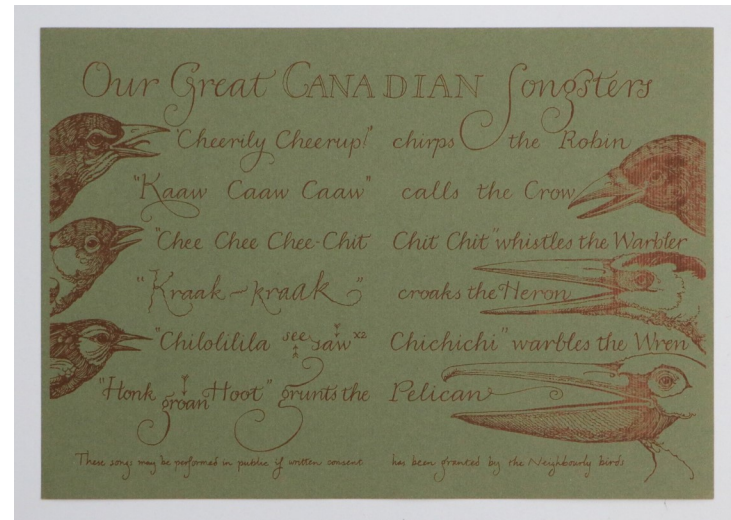 Our Great CANADIAN Songsters
"Cheerily Cheerup!" chirps the Robin
"Kaaw Caaw Caaw" calls the Crow
"Chee Chee Chee-Chit Chit Chit" whistles the Warbler
"Kraak-kraak" croaks the Heron
"Chilolilila see saw x2 Chichichi" warbles the Wren
"Honk groan Hoot" grunts the Pelican
These songs may be performed in public if written consent has been granted by the Neighbourly birds